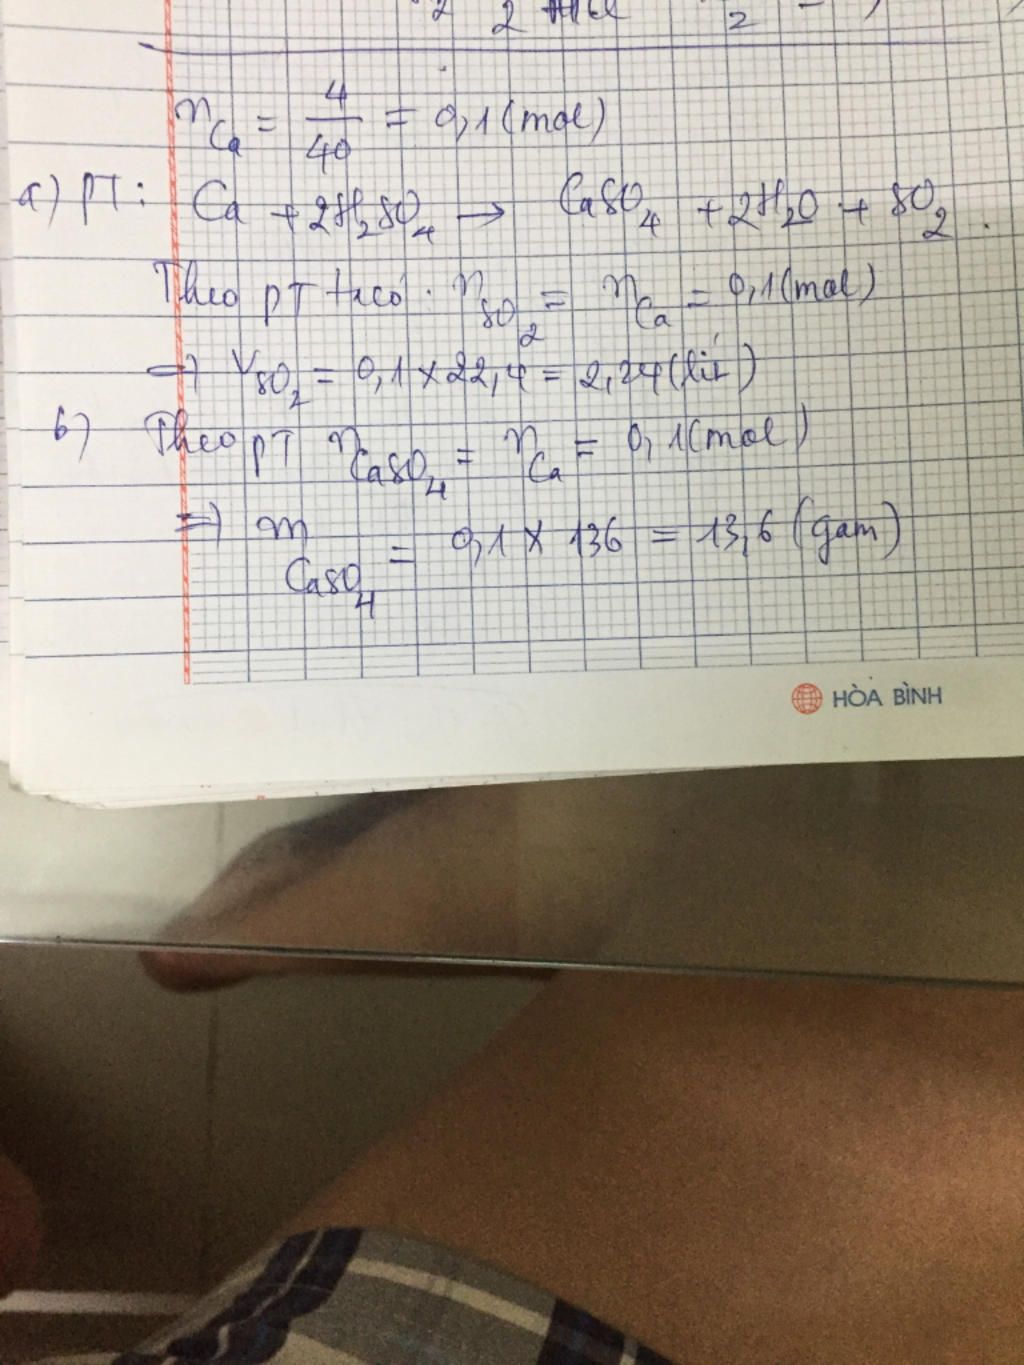 n Ca = 4/40 = 0,1 (mol)
a) PT: Ca + 2H2SO4 → CaSO4 + 2H2O + SO2.
Theo PT có: nSO2 = nCa = 0,1 (mol)
=> VSO2 = 0,1 x 22,4 = 2,24 (lít)
b) Theo PT nCaSO4 = nCa = 0,1 (mol)
=> m CaSO4 = 0,1 x 136 = 13,6 (gam)
HÒA BÌNH